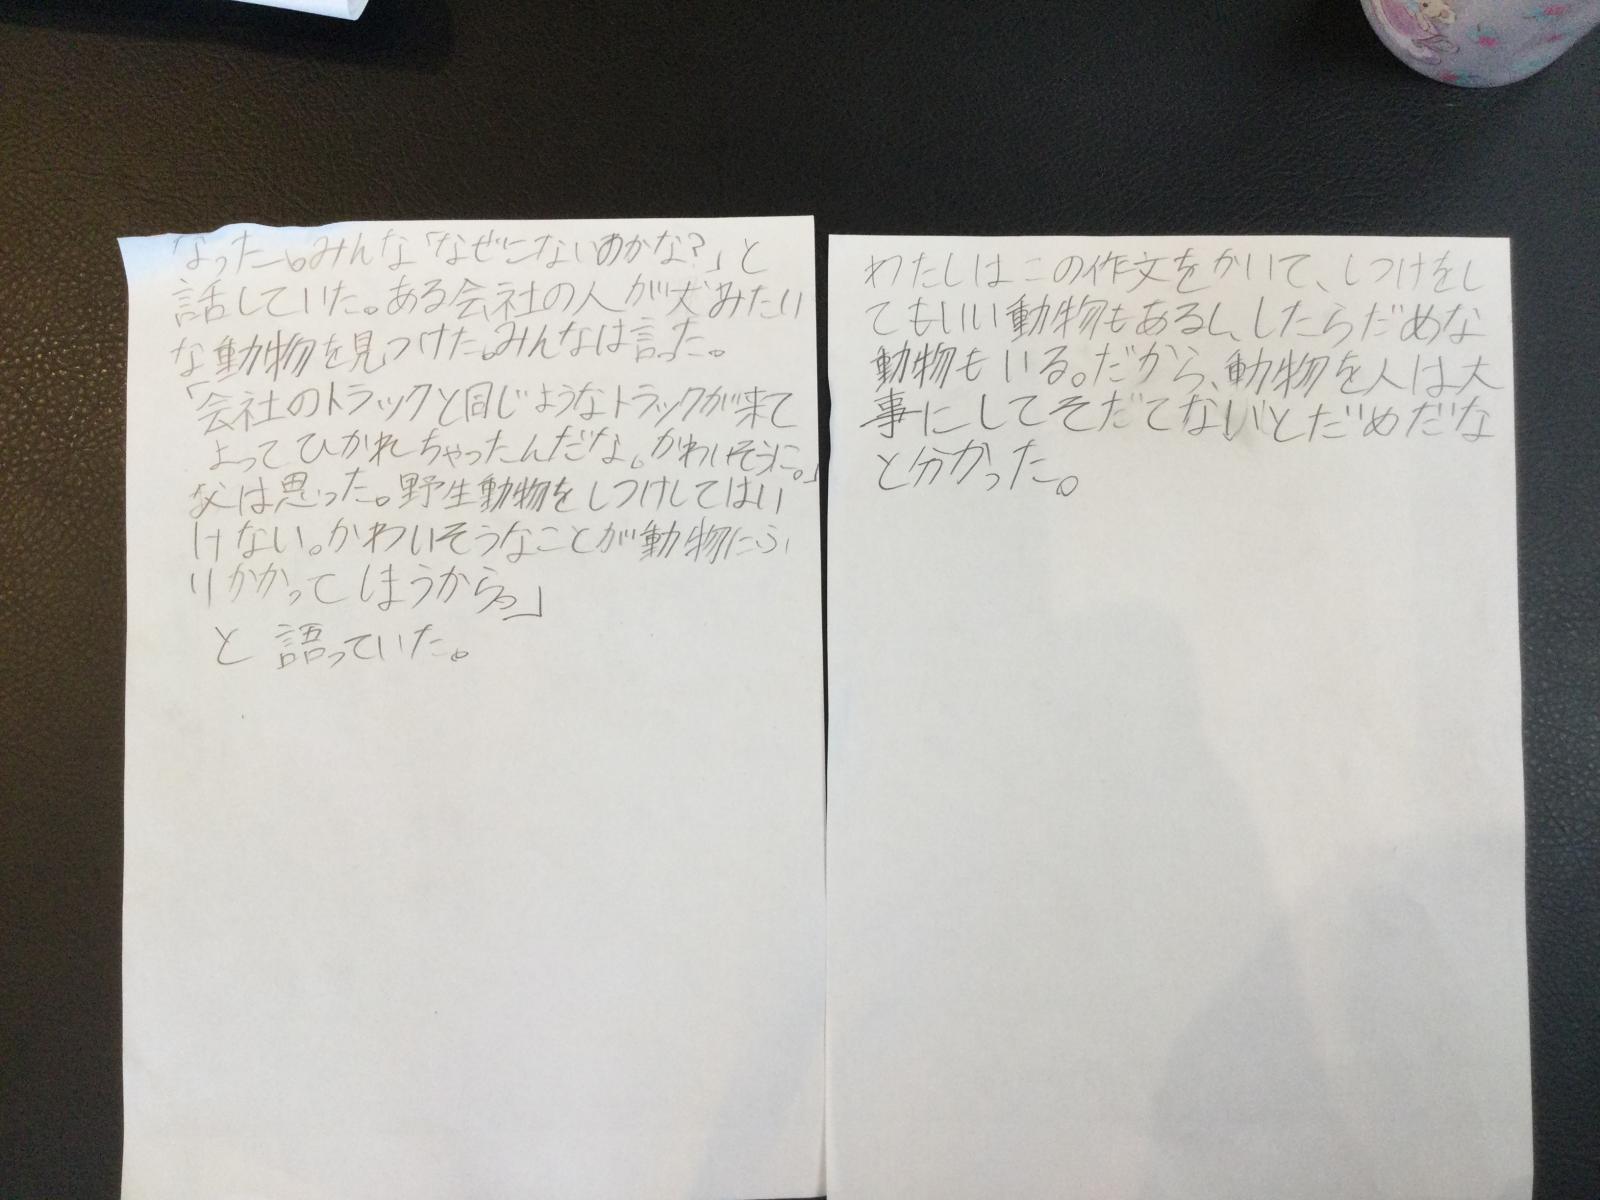 なった。みんな「なぜこないのかな?」と
話していた。ある会社の人が犬みたい
な動物を見つけた。みんなは言った。
「会社のトラックと同じようなトラックが来て
よってひかれちゃったんだな。かわいそうに。」
父は思った。野生動物をしつけしてはい
けない。かわいそうなことが動物にふ
りかかってしまうから。」
と語っていた。
わたしはこの作文をかいて、しつけをし
てもいい動物もあるし、したらだめな
動物もいる。だから、動物を人は大
事にしてそだてないとだめだな
と分かった。